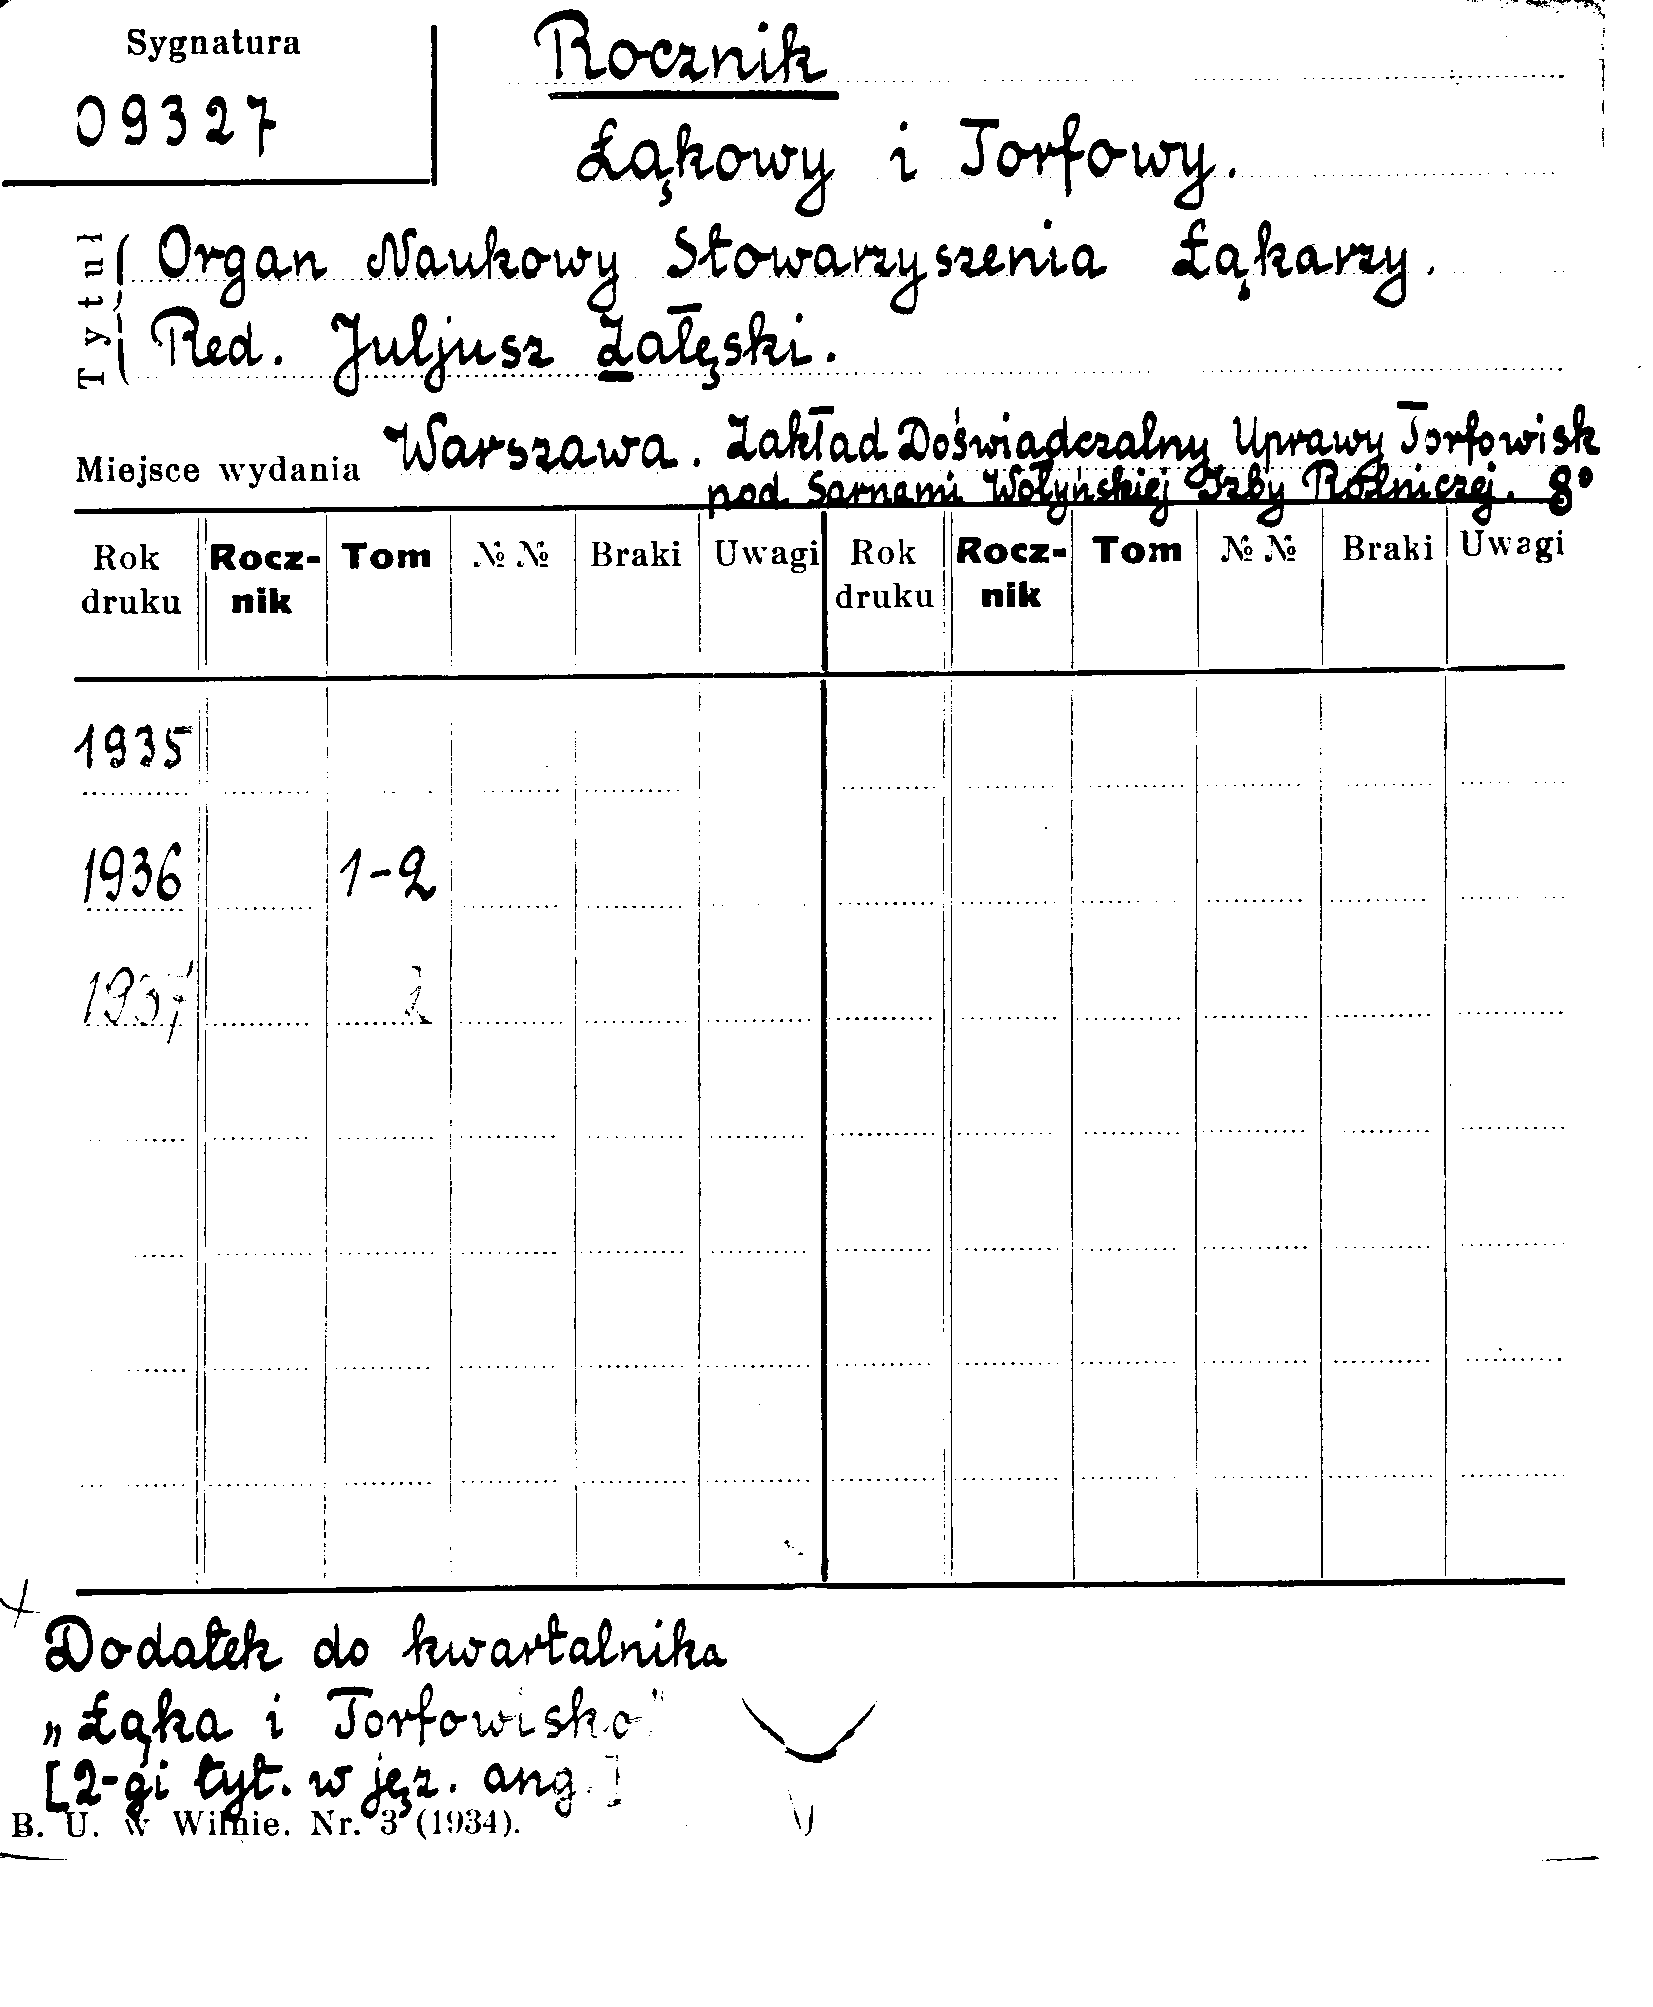 Sygnatura
09327
Rocznik
Łąkowy i Torfowy.
Tytuł
Organ Naukowy Stowarzyszenia Łąkarzy.
Red. Juljusz Załęski.
Miejsce wydania Warszawa. Zakład Doświadczalny Uprawy Torfowisk
pod Sarnami Wołyńskiej Izby Rolniczej. 8°
Rok druku Rocz-nik Tom №№ Braki Uwagi Rok druku Rocz-nik Tom №№ Braki Uwagi
1935
1936 1-2
1937 2
Dodatek do kwartalnika
„Łąka i Torfowisko"
[2-gi tyt. w jęz. ang.]
B. U. w Wilnie. Nr. 3 (1934).